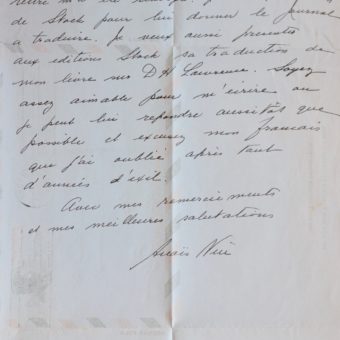 de Stock pour lui donner le Journal
a traduire. Je veux aussi presenter
aux editions Stock sa traduction de
mon livre sur D H Lawrence. Soyez
assez aimable pour m'ecrire ou
je peut lui repondre aussitôt que
possible et excusez mon francais
que j'ai oublié après tant
d'années d'exil.
Avec mes remerciements
et mes meilleures salutations
Anaïs Nin